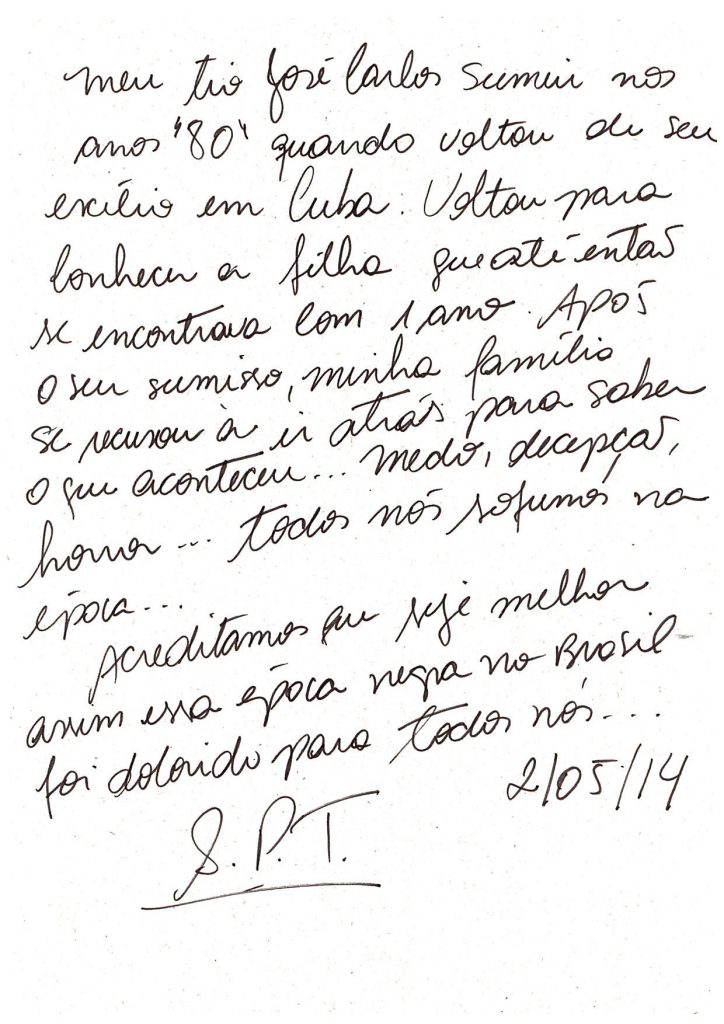 Meu tio José Carlos sumiu nos
anos "80" quando voltou de seu
exílio em Cuba. Voltou para
conhecer a filha que até então
se encontrava com 1 ano. Após
o seu sumisso, minha família
se recusou à ir atrás para saber
o que aconteceu... medo, decepção,
horror... todos nós sofremos na
época...
Acreditamos que seje melhor
assim essa época negra no Brasil -
foi dolorido para todos nós...
2/05/14
S.P.T.